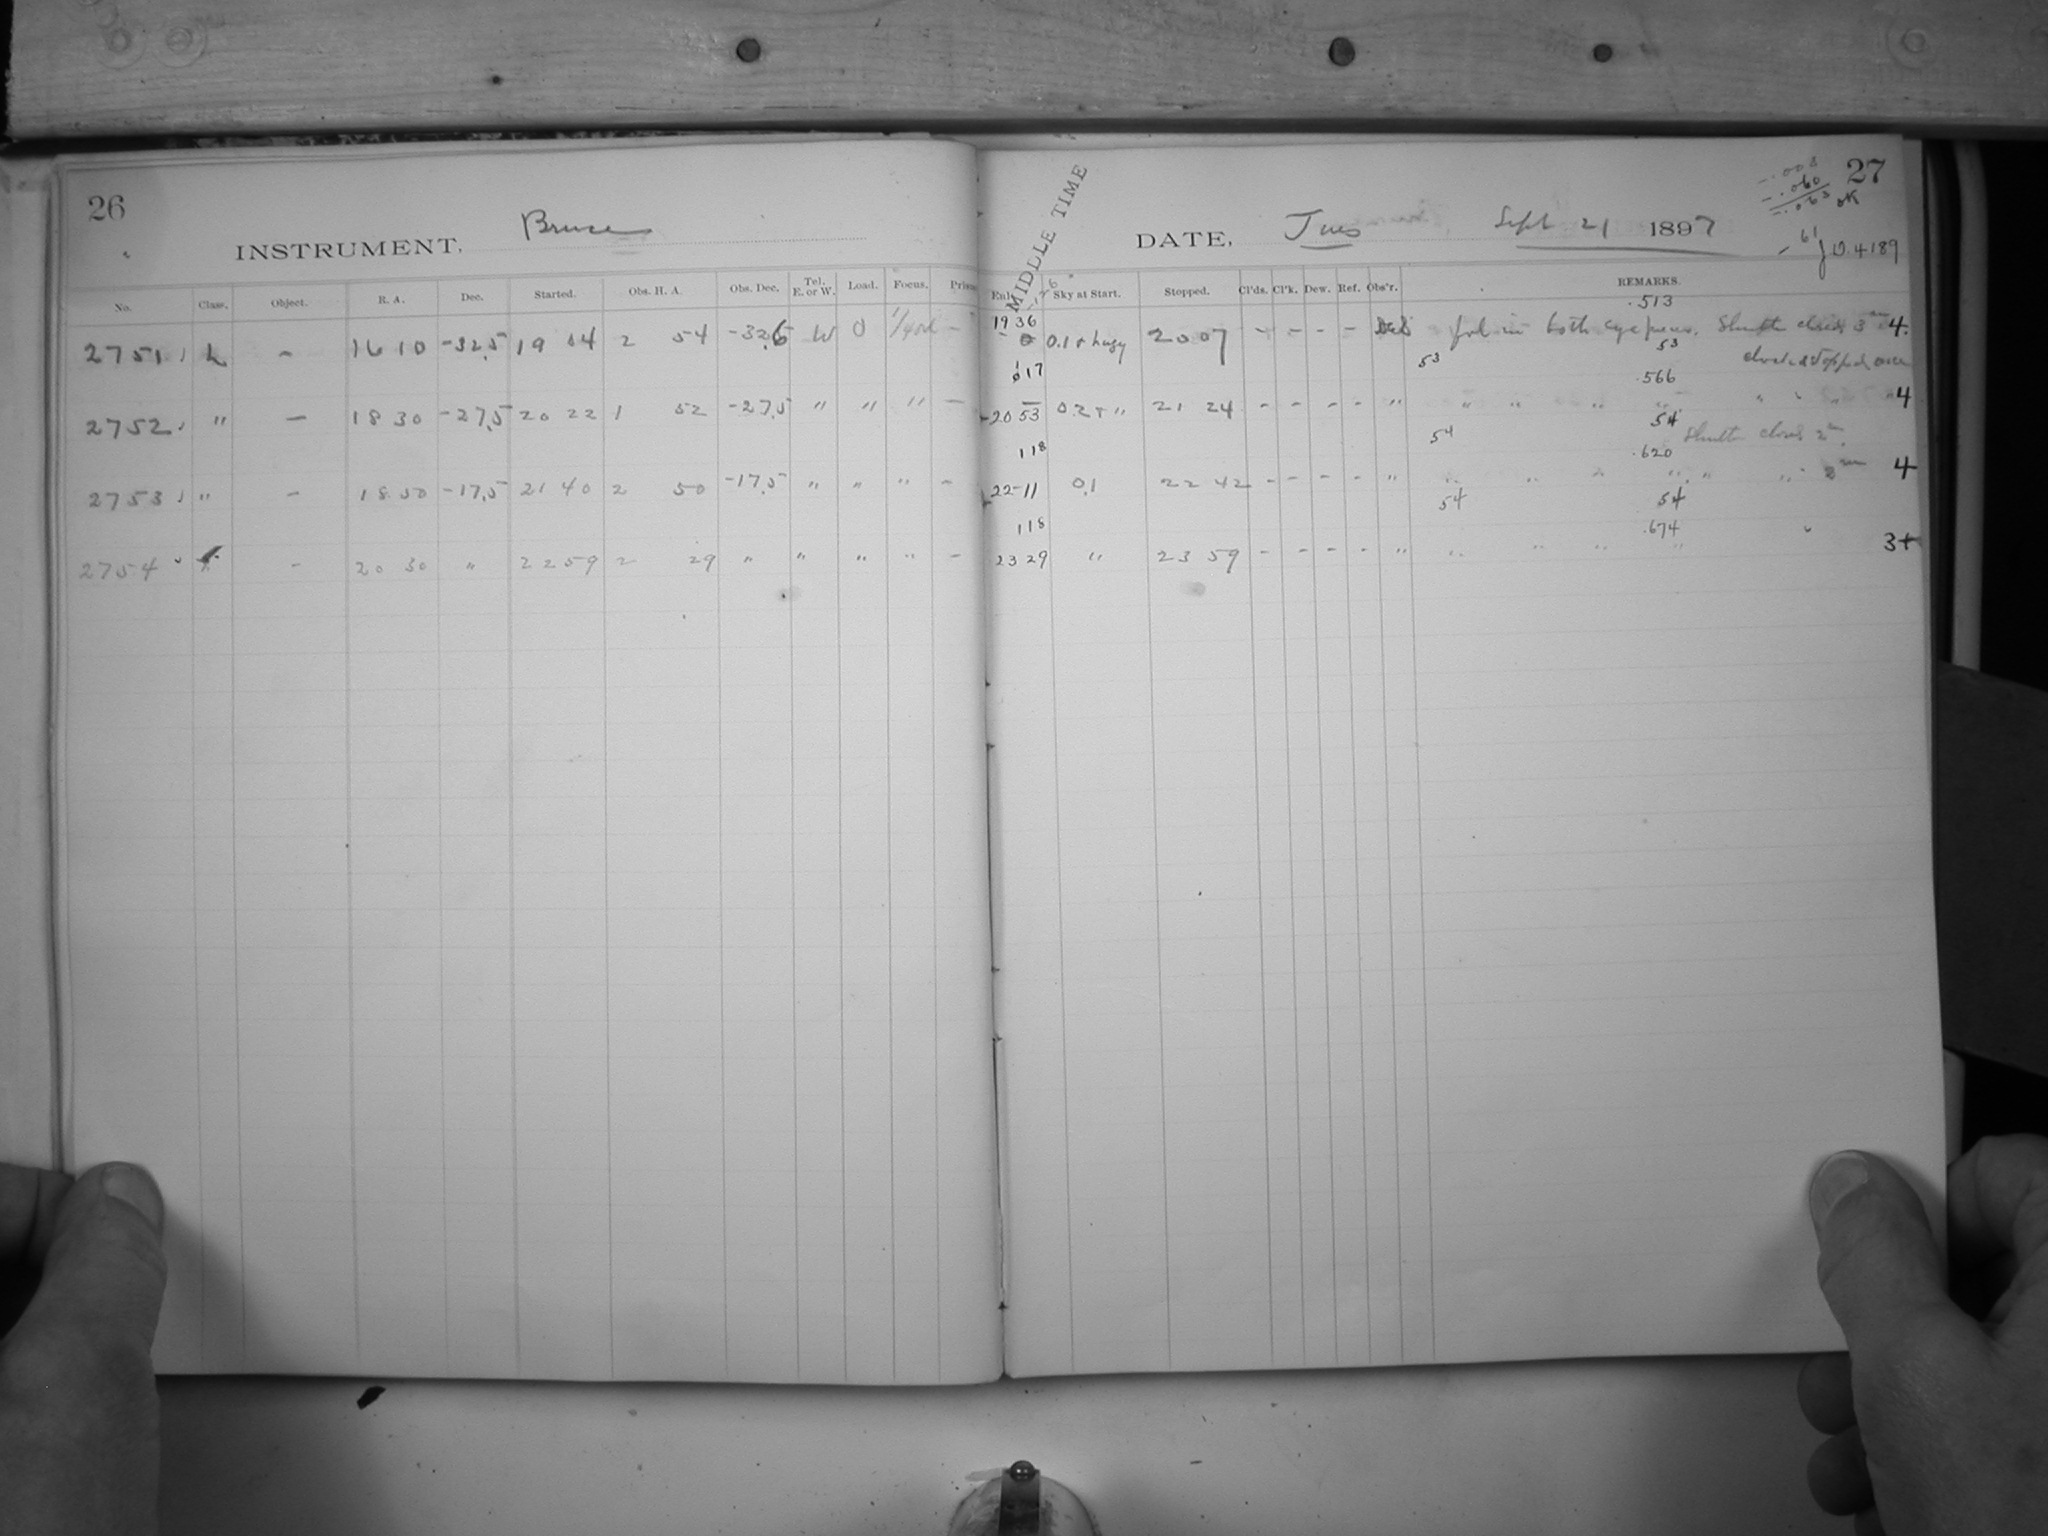 26
INSTRUMENT, Bruce
No. Class. Object. R. A. Dec. Started. Obs. H. A. Obs. Dec. Tel. E. or W. Load. Focus.
2751 L - 16 10 -32.5 19 04 2 54 -32.6 W 0 -
2752 " - 18 30 -27.5 20 22 1 52 -27.5 " " " -
2753 " - 18 50 -17.5 21 40 2 50 -17.5 " " " -
2754 - 20 30 " 22 59 2 29 " " " " -
27
MIDDLE TIME
-.003
-.060
-.063 OK
DATE, Tues Sept 21 1897
-61 J.D. 4189
Sky at Start. Stopped. Cl'ds. Cl'k. Dew. Ref. Obs'r. REMARKS.
.513
19 36 0.1 + hazy 20 07 - - - - in both eye pieces. Shutter closed 3m 4.
53 53 clock stopped once
117
.566
20 53 0.2 + " 21 24 - - - - " " " " " 4
54 54 Shutter closed 2m.
118
.620
22 11 0.1 22 42 - - - - " " " " " " " 4
54 54
118
.674
23 29 " 23 59 - - - - " " " " " 3+